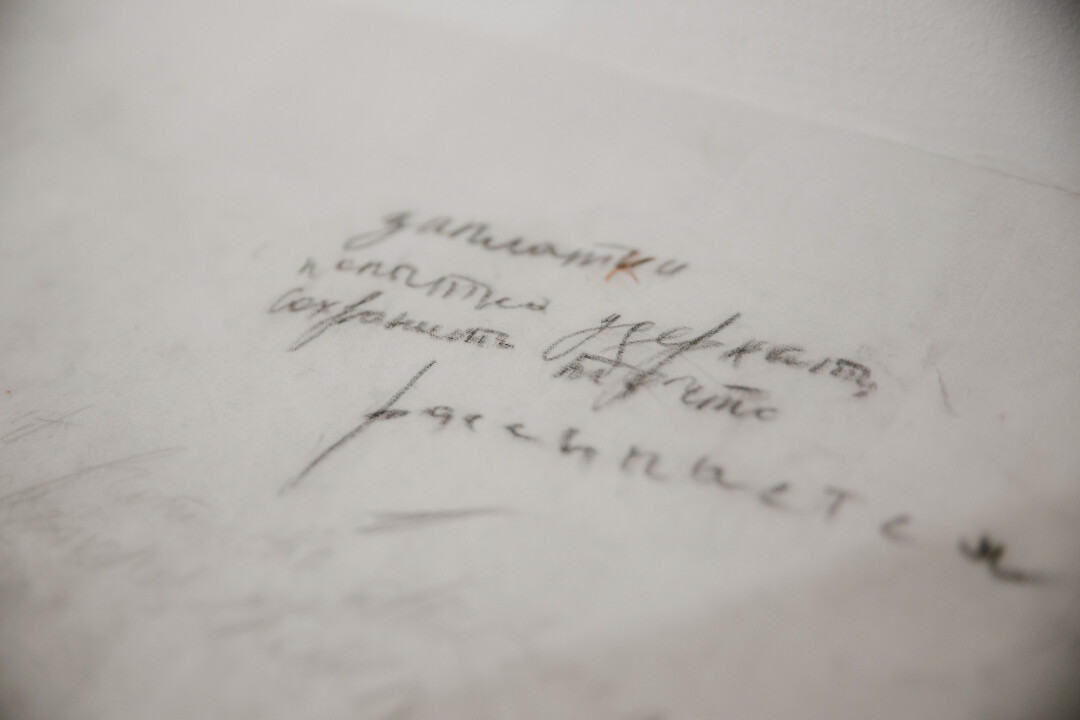 заплатки
попытка удержать,
сохранить то, что
рассыпается